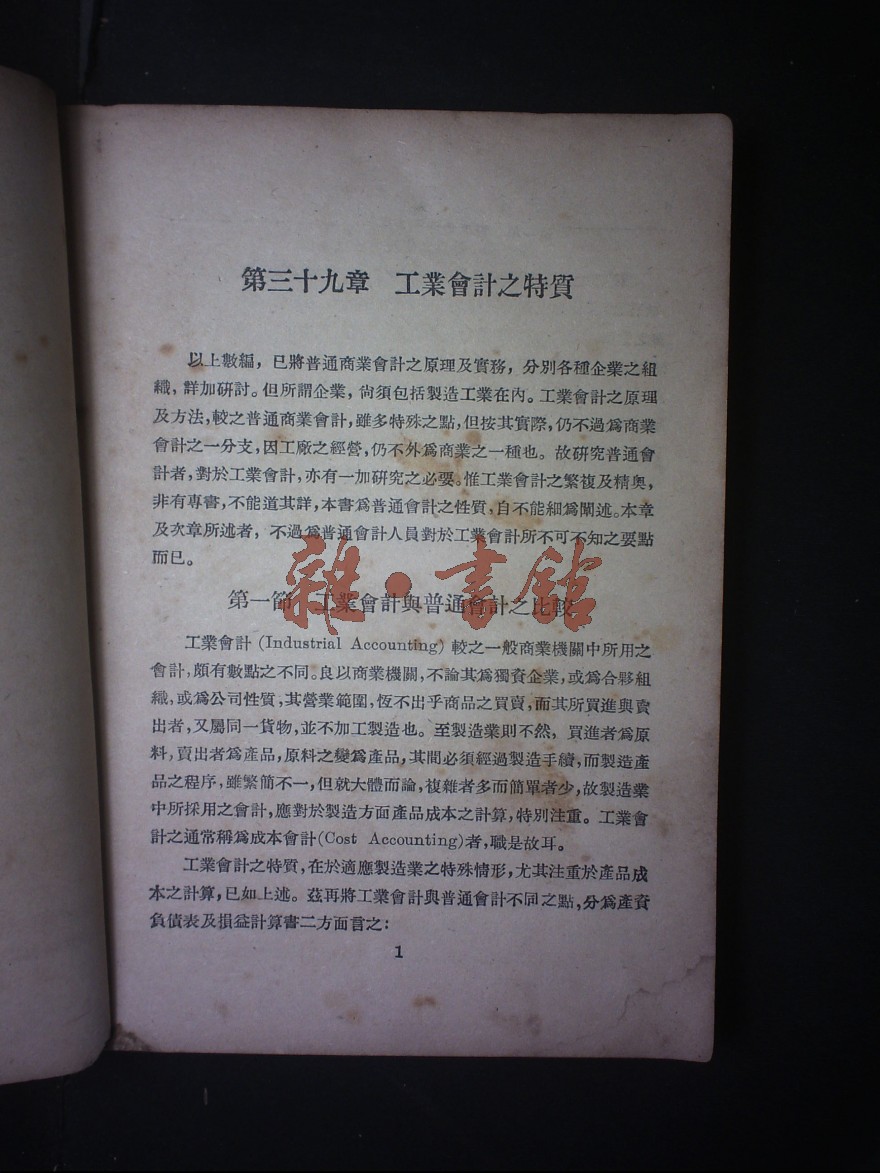 第三十九章 工業會計之特質
以上數編，已將普通商業會計之原理及實務，分別各種企業之組
織，詳加研討。但所謂企業，尙須包括製造工業在內。工業會計之原理
及方法，較之普通商業會計，雖多特殊之點，但按其實際，仍不過爲商業
會計之一分支，因工廠之經營，仍不外爲商業之一種也。故研究普通會
計者，對於工業會計，亦有一加研究之必要。惟工業會計之繁複及精奧，
非有專書，不能道其詳，本書爲普通會計之性質，自不能細爲闡述。本章
及次章所述者，不過爲普通會計人員對於工業會計所不可不知之要點
而已。
雜·書館
第一節 工業會計與普通會計之比較
工業會計 (Industrial Accounting) 較之一般商業機關中所用之
會計，頗有數點之不同。良以商業機關，不論其爲獨資企業，或爲合夥組
織，或爲公司性質，其營業範圍，恆不出乎商品之買賣，而其所買進與賣
出者，又屬同一貨物，並不加工製造也。至製造業則不然，買進者爲原
料，賣出者爲產品，原料之變爲產品，其間必須經過製造手續，而製造產
品之程序，雖繁簡不一，但就大體而論，複雜者多而簡單者少，故製造業
中所採用之會計，應對於製造方面產品成本之計算，特別注重。工業會
計之通常稱爲成本會計(Cost Accounting)者，職是故耳。
工業會計之特質，在於適應製造業之特殊情形，尤其注重於產品成
本之計算，已如上述。茲再將工業會計與普通會計不同之點，分爲產資
負債表及損益計算書二方面言之：
1